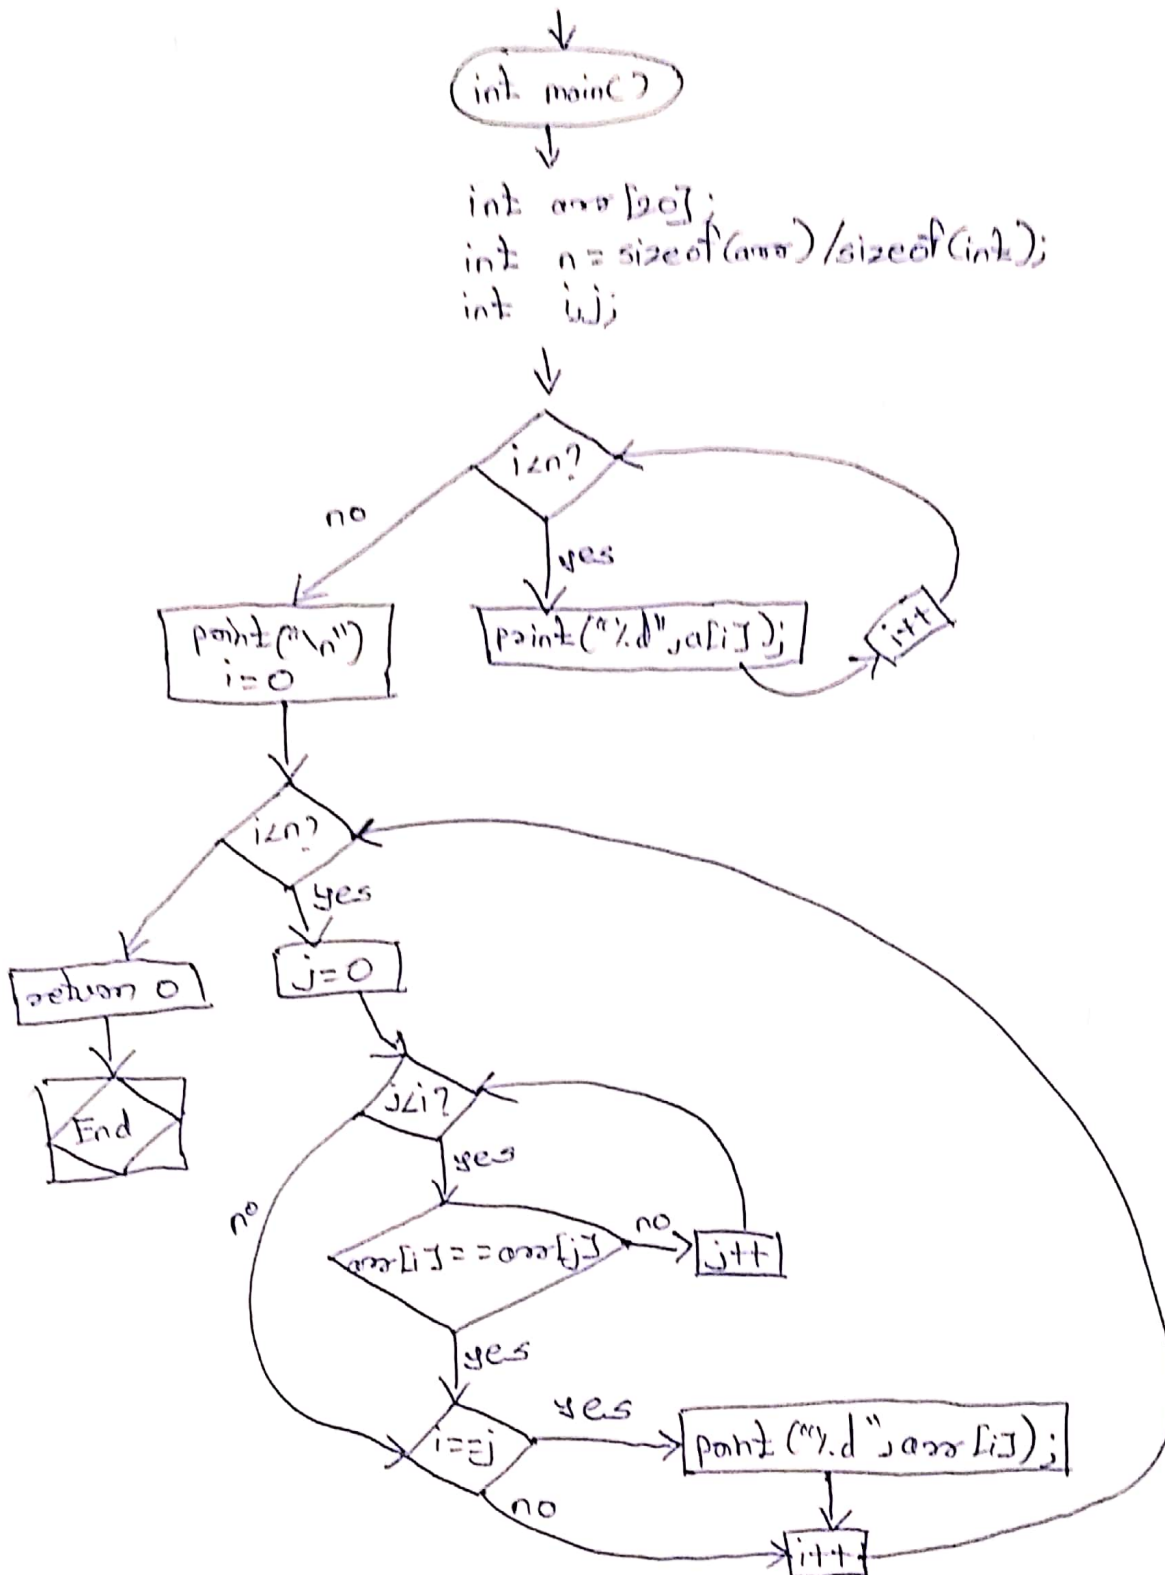 int main()
int arr[20];
int n = sizeof(arr)/sizeof(int);
int i,j;
i<n?
no
yes
print("\n")
i=0
print("%d",a[i]);
i++
i<n?
yes
return 0
j=0
End
j<i?
yes
no
arr[i]==arr[j]
no
j++
yes
i==j
yes
print("%d",arr[i]);
no
i++